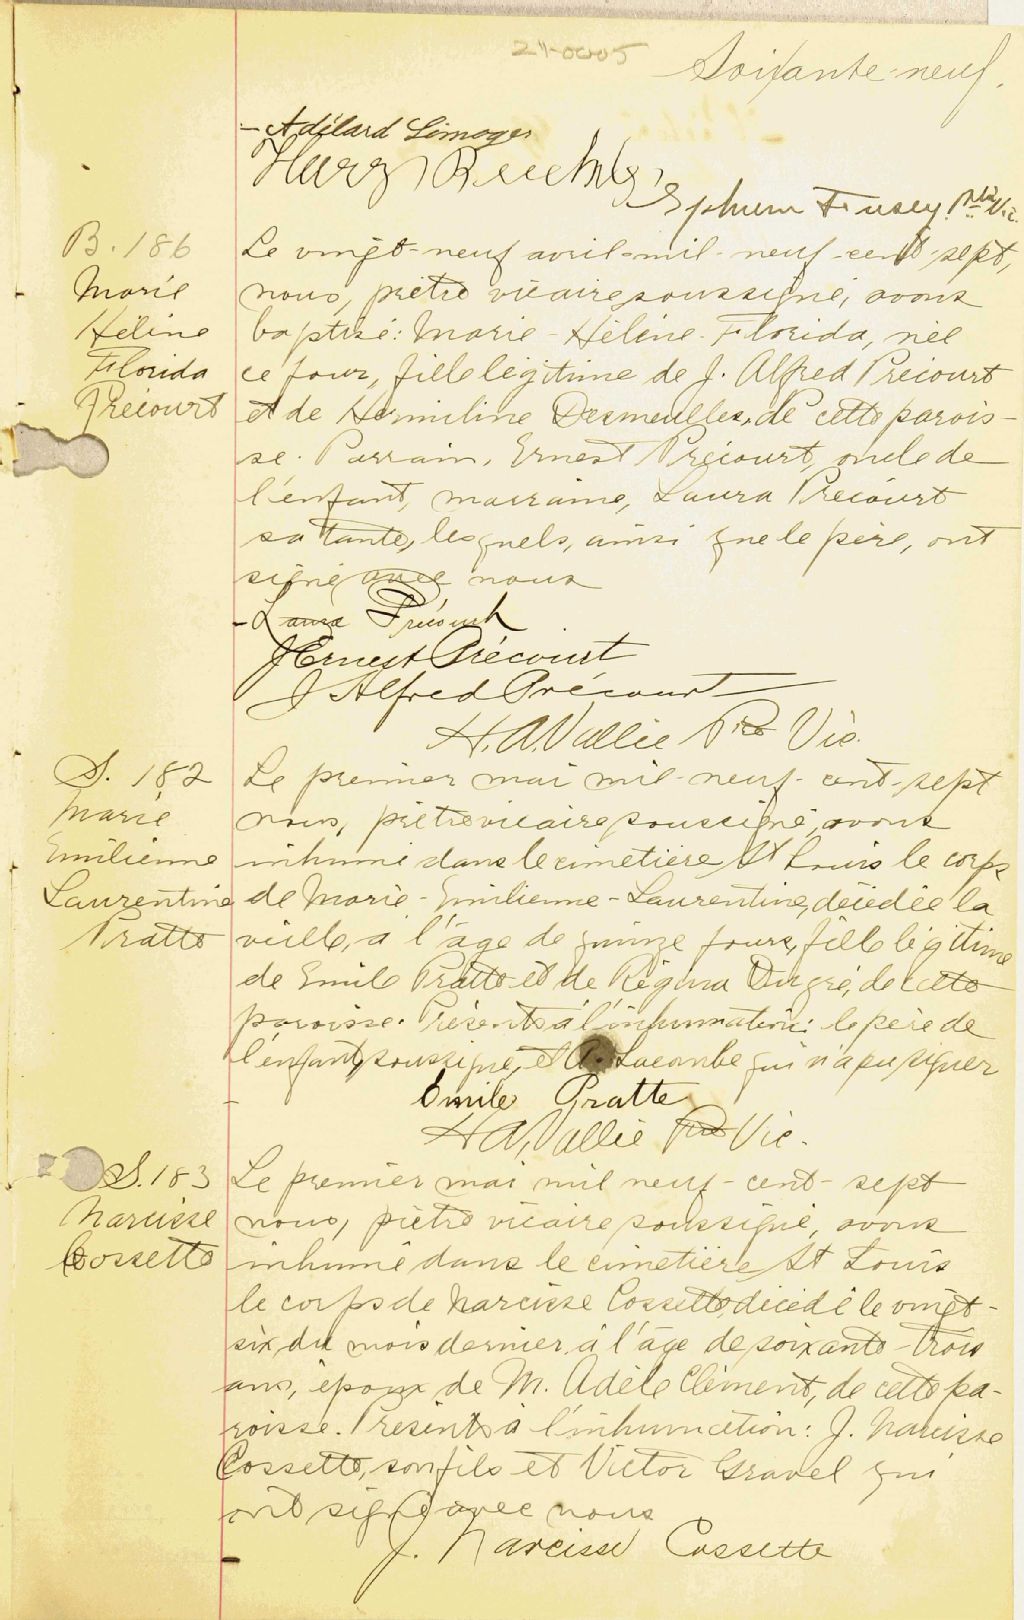 Soixante-neuf.
- Adélard Limoges
Harry
Ephrem Fusey, Ptre Vic.
B. 186
Marie
Hélène
Florida
Précourt
Le vingt-neuf avril-mil-neuf-cent-sept,
nous, prêtre vicaire soussigné, avons
baptisé: Marie-Hélène-Florida, née
ce jour, fille légitime de J. Alfred Précourt
et de Herméline Desmeulles, de cette parois-
se. Parrain, Ernest Précourt, oncle de
l'enfant, marraine, Laura Précourt
sa tante, lesquels, ainsi que le père, ont
signé avec nous
- Laura Précourt
J Ernest Précourt
J Alfred Précourt
H. A. Vallée Ptre Vic.
S. 182
Marie
Emilienne
Laurentine
Pratte
Le premier mai mil-neuf-cent-sept
nous, prêtre vicaire soussigné, avons
inhumé dans le cimetière St Louis le corps
de Marie-Emilienne-Laurentine, décédée la
veille, à l'âge de quinze jours, fille légitime
de Emile Pratte et de Régina Dugré, de cette
paroisse. Présents à l'inhumation: le père de
l'enfant, soussigné, et A. Lacombe qui n'a pu signer
Emile Pratte
H A. Vallée Ptre Vic.
S. 183
Narcisse
Cossette
Le premier mai mil neuf-cent-sept
nous, prêtre vicaire soussigné, avons
inhumé dans le cimetière St Louis
le corps de Narcisse Cossette, décédé le vingt-
six du mois dernier à l'âge de soixante-trois
ans, époux de M. Adèle Clément, de cette pa-
roisse. Présents à l'inhumation: J. Narcisse
Cossette, son fils et Victor Gravel qui
ont signé avec nous
J. Narcisse Cossette